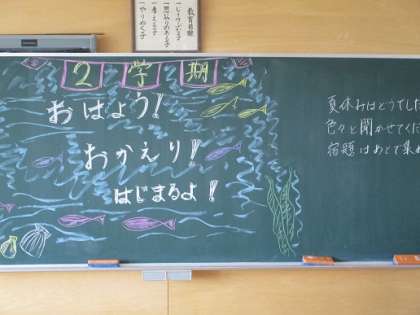 教育目標
２学期
おはよう!
おかえり!
はじまるよ!
夏休みはどうでした
色々と聞かせてくだ
宿題はあとで集め